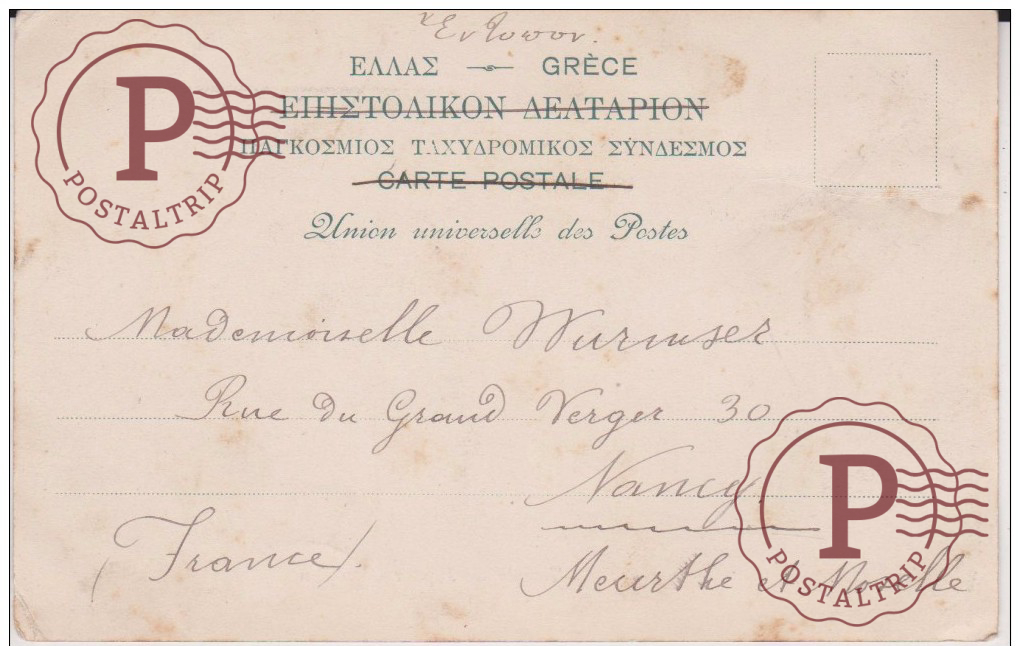 Ἔντυπον.
ΕΛΛΑΣ — GRÈCE
ΕΠΙΣΤΟΛΙΚΟΝ ΔΕΛΤΑΡΙΟΝ
ΠΑΓΚΟΣΜΙΟΣ ΤΑΧΥΔΡΟΜΙΚΟΣ ΣΥΝΔΕΣΜΟΣ
CARTE POSTALE
Union universelle des Postes
P
POSTALTRIP
Mademoiselle Wurmser
Rue du Grand Verger 30
Nancy
(France).
Meurthe et Moselle
P
POSTALTRIP